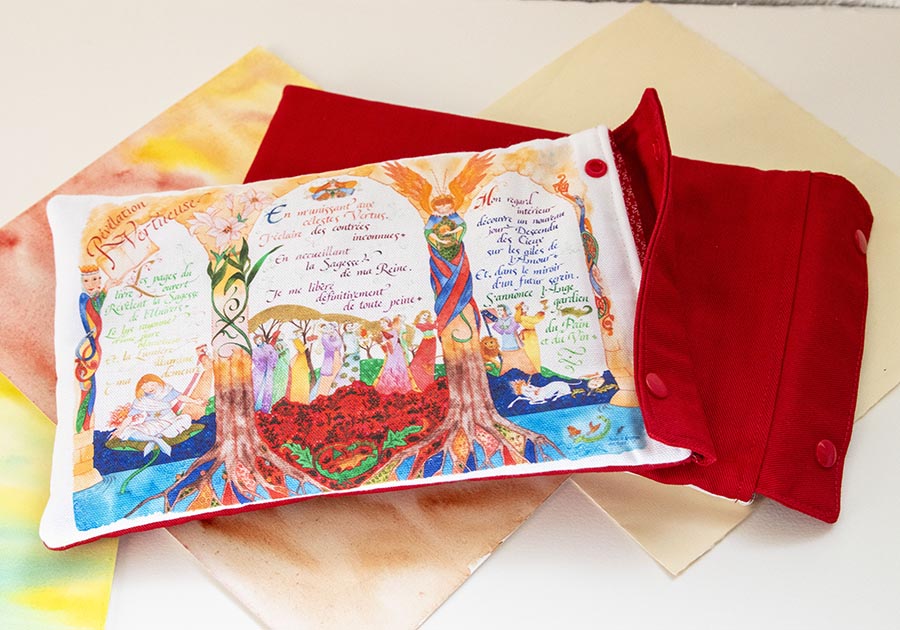 Révélation
Vertueuse
Les pages du
livre ouvert
Révèlent la Sagesse
de l'Univers
Et la Lumière
ma
En m'unissant aux
célestes Vertus,
J'éclaire des contrées
inconnues.
En accueillant
la Sagesse
de ma Reine,
Je me libère
définitivement
de toute peine.
Mon regard
intérieur
découvre un nouveau
jour Descendu
des Cieux
sur les ailes de
l'Amour.
Et, dans le miroir
d'un futur serein,
S'annonce l'Ange
gardien
du Pain
et du Vin